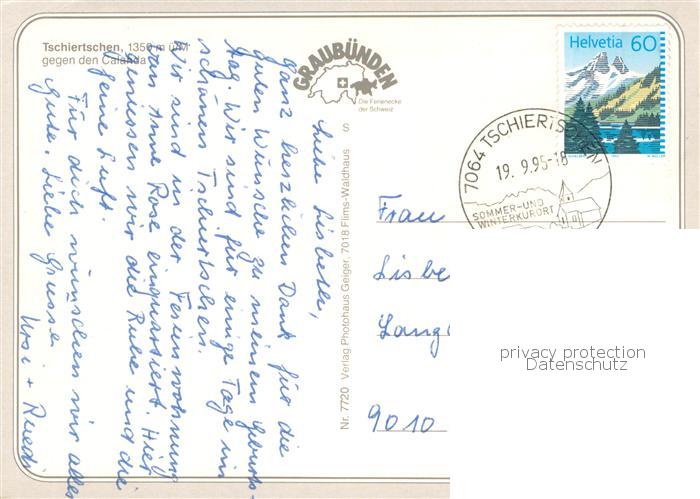 Tschiertschen, 1350 m üM
gegen den Calanda
GRAUBÜNDEN
Die Ferienecke
der Schweiz
Helvetia 60
7064 TSCHIERTSCHEN
19. 9.95-18
SOMMER-UND
WINTERKURORT
S
Nr. 7720 Verlag Photohaus Geiger, 7018 Flims-Waldhaus
Liebe Lisbeth,
Ganz herzlichen Dank für die
guten Wünsche zu meinem Geburts-
tag. Wir sind für einige Tage im
schönen Tschiertschen.
Wir sind in der Ferienwohnung
von Anne Rose einquartiert. Hier
geniessen wir die Ruhe und die
feine Luft.
Für dich wünschen wir alles
Gute. Liebe Grüsse
Ursi + Ruedi
Frau
Lisbe
Lang
9010
privacy protection
Datenschutz